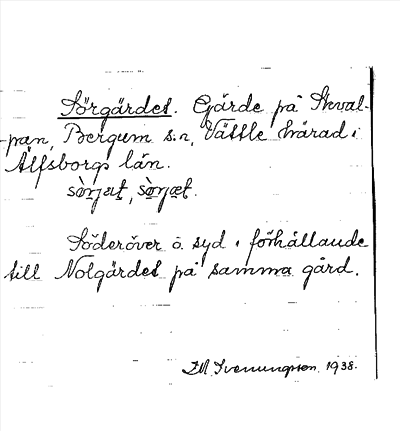 Sörgärdet. Gärde på Skval-
-pan, Bergum s:n, Vättle härad i
Älfsborgs län.
Söderöver å syd i förhållande
till Nolgärdet på samma gård.
1938.